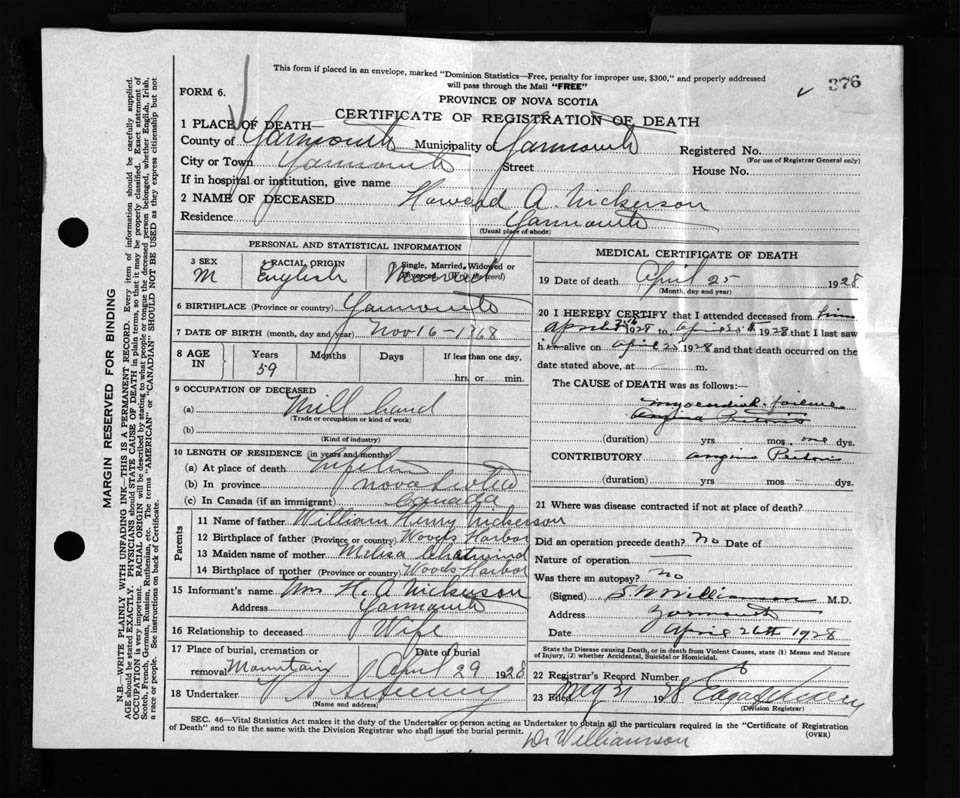 This form if placed in an envelope, marked "Dominion Statistics—Free, penalty for improper use, $300," and properly addressed
will pass through the Mail "FREE"
376
FORM 6.
PROVINCE OF NOVA SCOTIA
CERTIFICATE OF REGISTRATION OF DEATH
1 PLACE OF DEATH—
County of Yarmouth Municipality of Yarmouth Registered No.
(For use of Registrar General only)
City or Town Yarmouth Street House No.
If in hospital or institution, give name
2 NAME OF DECEASED Howard A. Nickerson
Residence Yarmouth
(Usual place of abode)
PERSONAL AND STATISTICAL INFORMATION
3 SEX 4 RACIAL ORIGIN 5 Single, Married, Widowed or
Divorced (Write the word)
M English Married
6 BIRTHPLACE (Province or country) Yarmouth
7 DATE OF BIRTH (month, day and year) Nov 16-1868
8 AGE IN Years Months Days If less than one day,
59 hrs or min.
9 OCCUPATION OF DECEASED
(a) Mill hand
(Trade or occupation or kind of work)
(b)
(Kind of industry)
10 LENGTH OF RESIDENCE (in years and months)
(a) At place of death
(b) In province Nova Scotia
(c) In Canada (if an immigrant) Canada
Parents
11 Name of father William Henry Nickerson
12 Birthplace of father (Province or country) Woods Harbor
13 Maiden name of mother Melisa
14 Birthplace of mother (Province or country) Woods Harbor
15 Informant's name Mrs H. A Nickerson
Address Yarmouth
16 Relationship to deceased Wife
17 Place of burial, cremation or removal Mountain Date of burial April 29 1928
18 Undertaker V S Sweeney
(Name and address)
MEDICAL CERTIFICATE OF DEATH
19 Date of death April 25 1928
(Month, day and year)
20 I HEREBY CERTIFY that I attended deceased from him
April 1928 to April 25th 1928 that I last saw
him alive on April 25 1928 and that death occurred on the
date stated above, at m.
The CAUSE of DEATH was as follows:—
myocardial failure
Angina Pectoris
(duration) yrs mos. one dys.
CONTRIBUTORY angina Pectoris
(duration) yrs mos dys.
21 Where was disease contracted if not at place of death?
Did an operation precede death? No Date of
Nature of operation —
Was there an autopsy? no
(Signed) S W Williamson M.D.
Address Yarmouth
Date April 26th 1928
State the Disease causing Death, or in death from Violent Causes, state (1) Means and Nature
of Injury, (2) whether Accidental, Suicidal or Homicidal.
22 Registrar's Record Number 8
23 Filed May 21 1928
(Division Registrar)
SEC. 46—Vital Statistics Act makes it the duty of the Undertaker or person acting as Undertaker to obtain all the particulars required in the "Certificate of Registration
of Death" and to file the same with the Division Registrar who shall issue the burial permit.
(OVER)
Dr Williamson
MARGIN RESERVED FOR BINDING
N.B.—WRITE PLAINLY WITH UNFADING INK—THIS IS A PERMANENT RECORD. Every item of information should be carefully supplied.
AGE should be stated EXACTLY. PHYSICIANS should STATE CAUSE OF DEATH in plain terms, so that it may be properly classified. Exact statement of
OCCUPATION is very important. RACIAL ORIGIN will be described by stating to what people or tongue the deceased person belonged, whether English, Irish,
Scotch, French, German, Russian, Ruthenian, etc. The terms "AMERICAN" or "CANADIAN" SHOULD NOT BE USED as they express citizenship but not
a race or people. See instructions on back of Certificate.